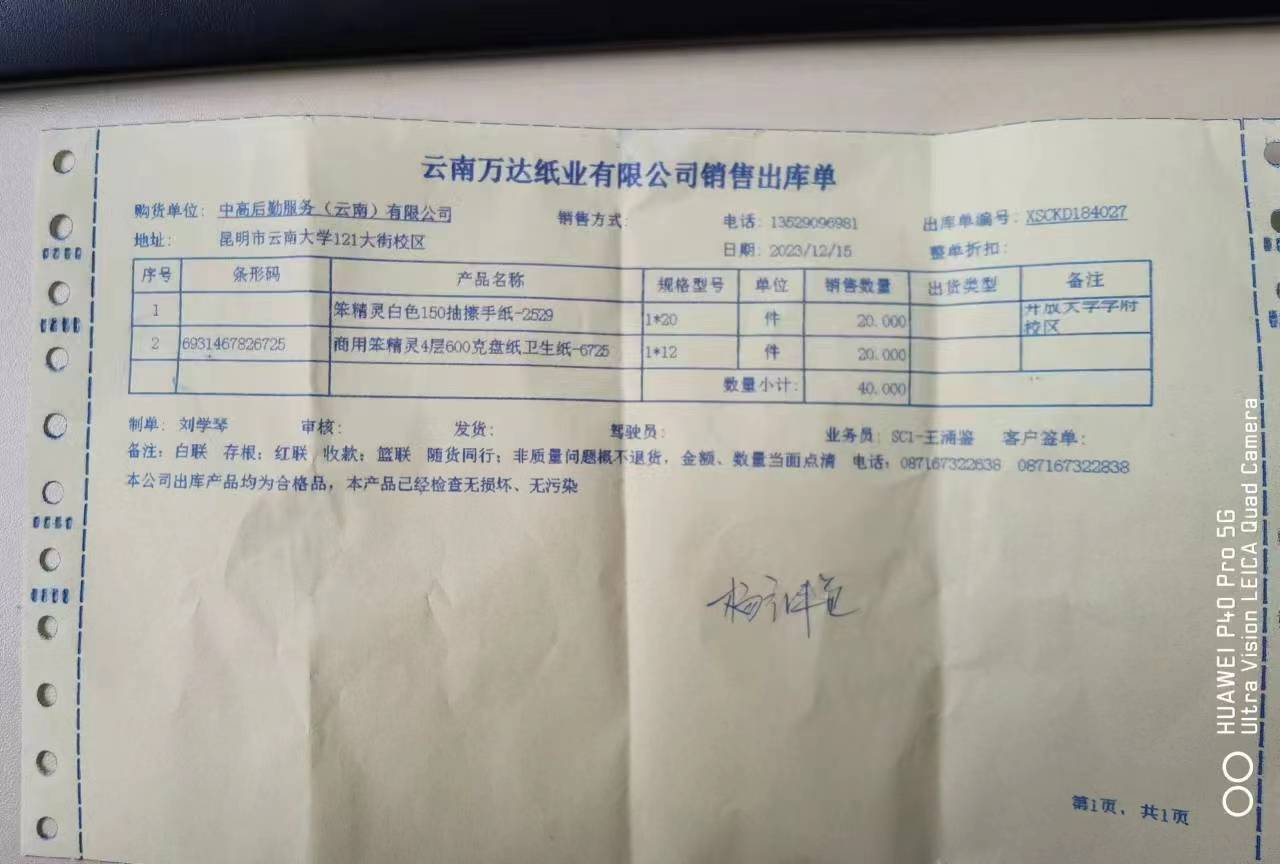 云南万达纸业有限公司销售出库单
购货单位: 中高后勤服务（云南）有限公司 销售方式: 电话: 13529096981 出库单编号: XSCKD184027
地址: 昆明市云南大学121大街校区 日期: 2023/12/15 整单折扣:
序号 条形码 产品名称 规格型号 单位 销售数量 出货类型 备注
1 笨精灵白色150抽擦手纸-2529 1*20 件 20.000 开放大学学府校区
2 6931467826725 商用笨精灵4层600克盘纸卫生纸-6725 1*12 件 20.000
数量小计: 40.000
制单: 刘学琴 审核: 发货: 驾驶员: 业务员: SC1-王涌鉴 客户签单:
备注: 白联 存根; 红联 收款; 篮联 随货同行; 非质量问题概不退货, 金额、数量当面点清 电话: 087167322638 087167322838
本公司出库产品均为合格品, 本产品已经检查无损坏、无污染
第1页, 共1页
HUAWEI P40 Pro 5G
Ultra Vision LEICA Quad Camera